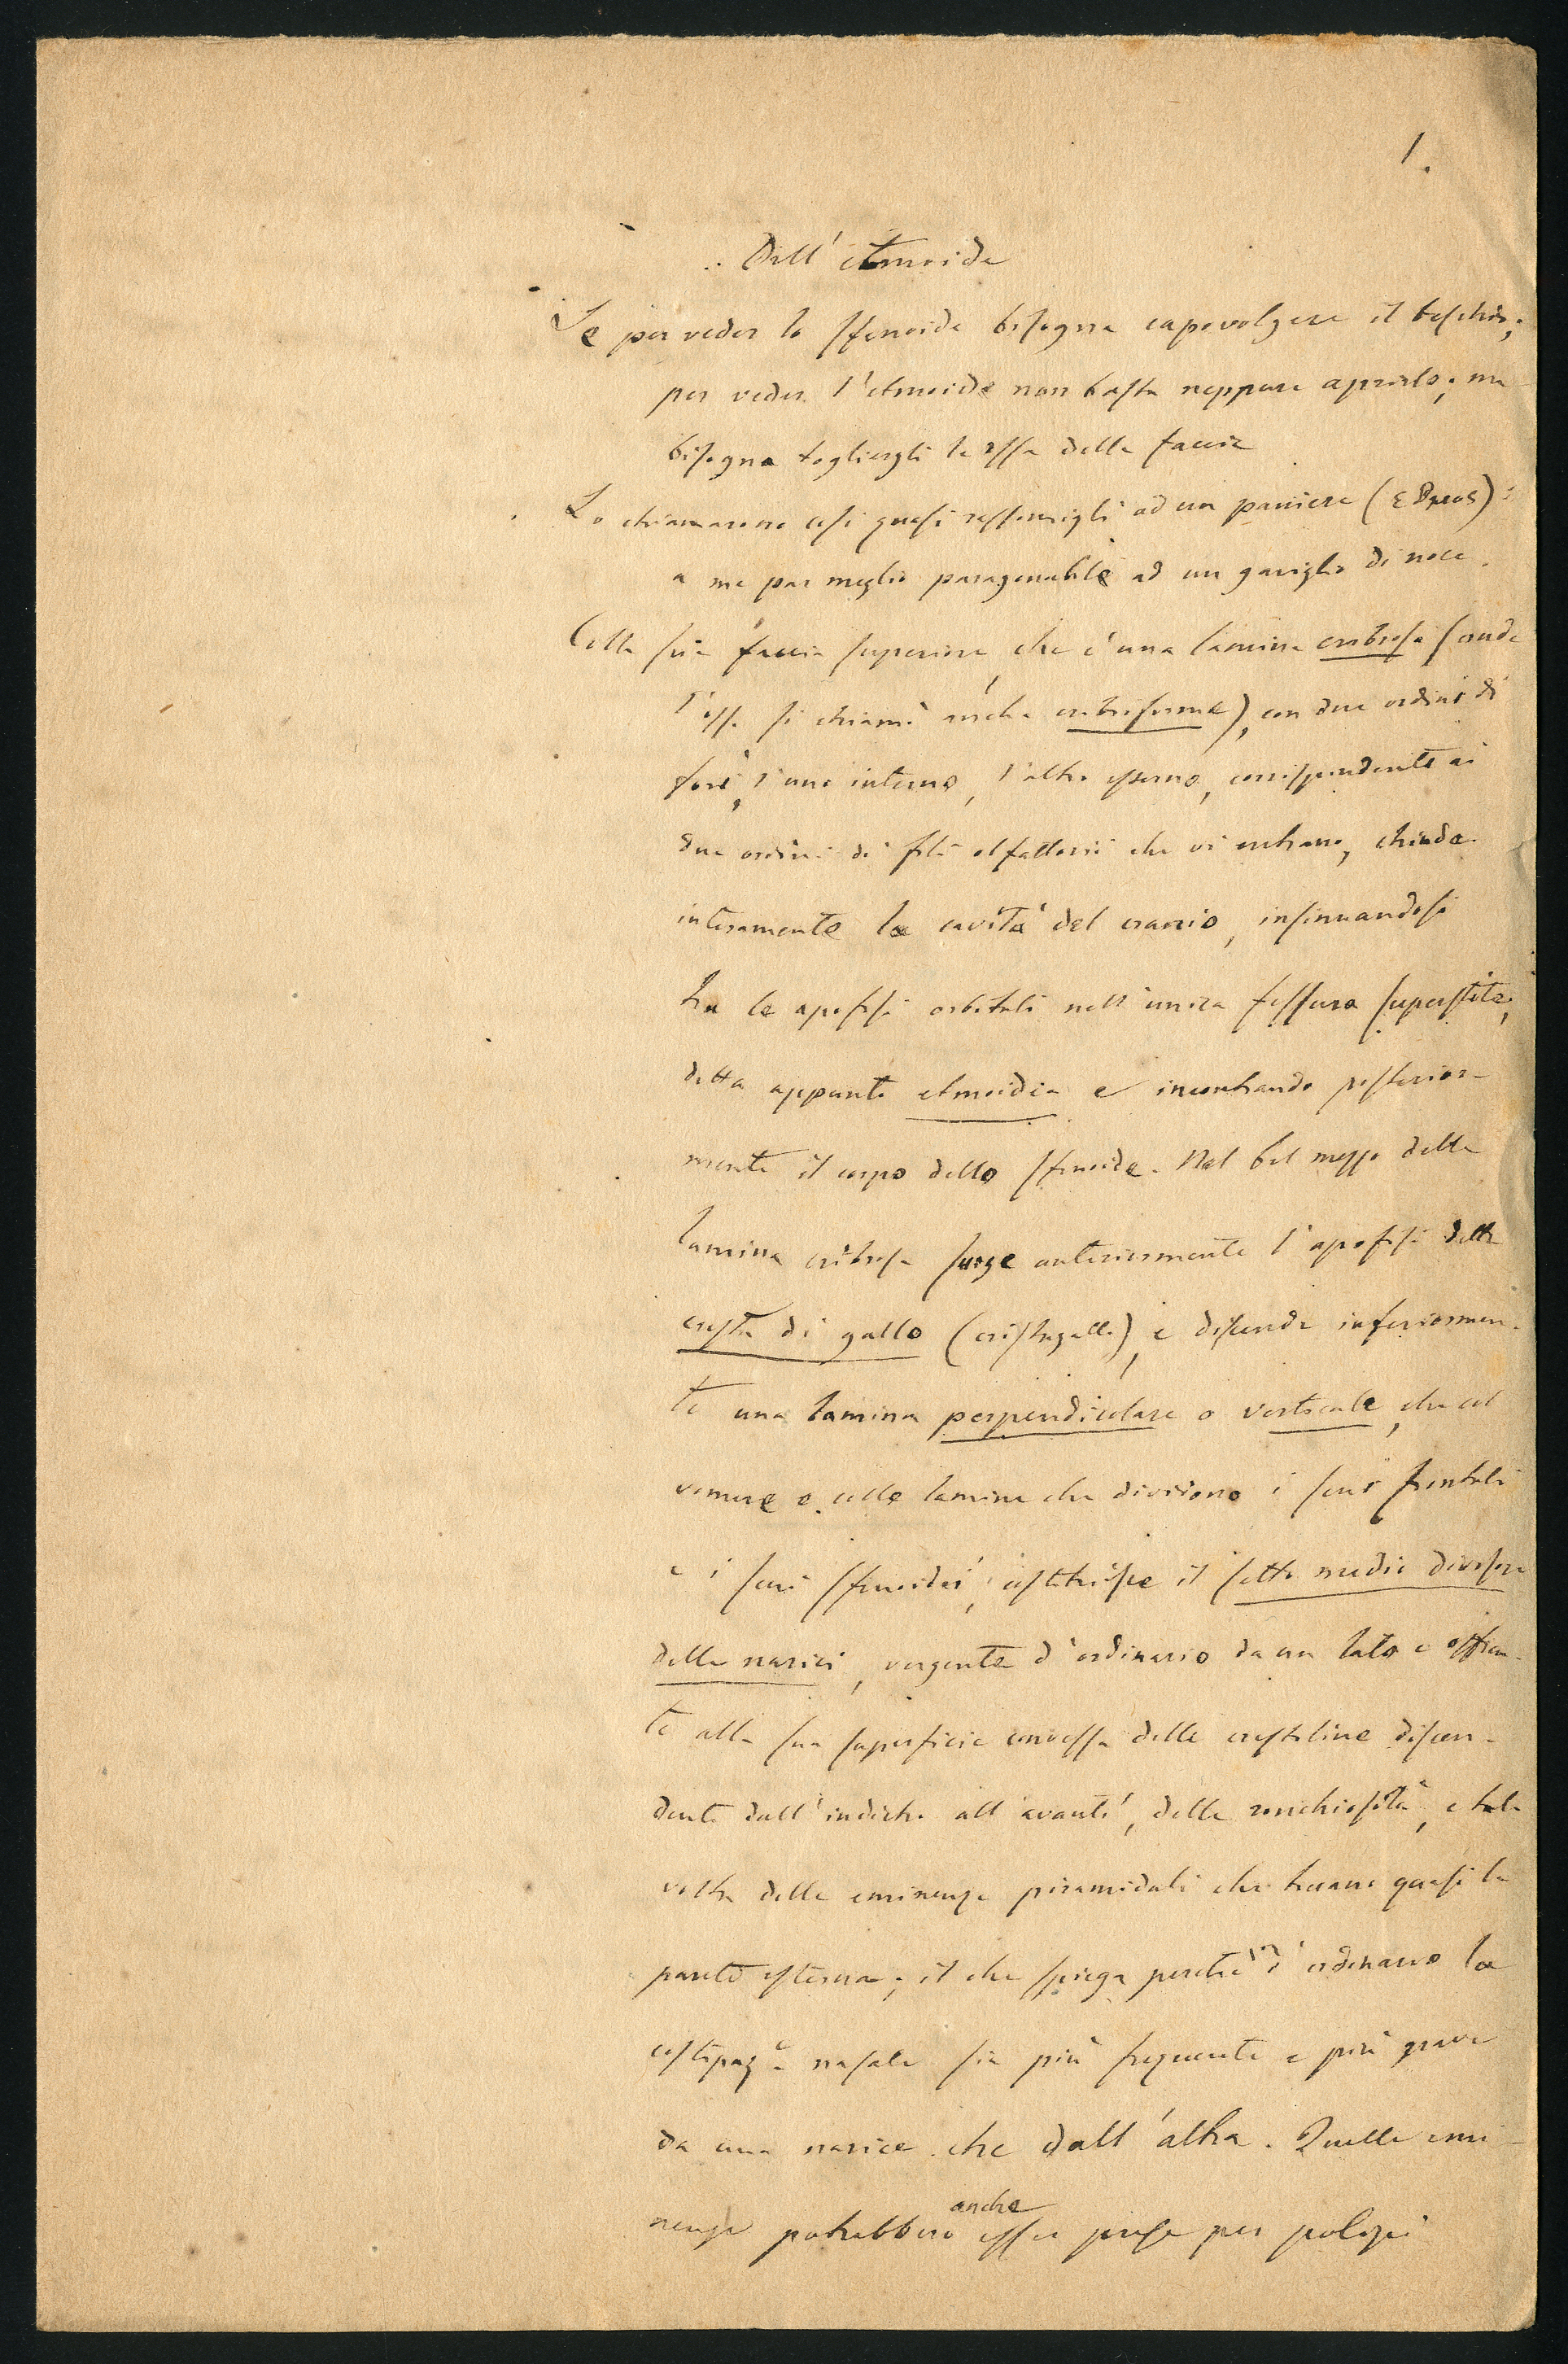 1.
Dell' etmoide
Se per veder lo sfenoide bisogna capovolgere il teschio;
per veder l'etmoide non basta neppure aprirlo; ma
bisogna togliergli le ossa della faccia
Lo chiamarono così quasi rassomigli ad un paniere
a me par meglio paragonabile ad un gariglio di noce.
Colla sua faccia superiore, che è una lamina cribrosa (onde
l'osso si chiamò anche cribriforme), con due ordini di
fori, l'uno interno, l'altro esterno, corrispondenti ai
due ordini di fili olfattorii che vi entrano, chiude
interamente la cavità del cranio, insinuandosi
tra le apofisi orbitali nell'unica fessura superstite,
detta appunto etmoidea e incontrando posterior-
mente il corpo dello sfenoide. Nel bel mezzo della
lamina cribrosa sorge anteriormente l'apofisi detta
cresta di gallo (cristagalli), e discende inferiormen-
te una lamina perpendicolare o verticale, che col
vomere e colle lamine che dividono i seni frontali
e i seni sfenoidei, costituisce il setto medio divisore
delle narici, vergente d'ordinario da un lato e offren-
te alla sua superficie convessa delle crestoline discen-
denti dall'indietro all'avanti, delle ronchiosità, e tal-
volta delle eminenze piramidali che toccano quasi la
parete esterna; il che spiega perchè d'ordinario la
costipaz.e nasale sia più frequente e più grave
da una narice che dall'altra. Quelle emi-
nenze potrebbero anche esser prese per polipi